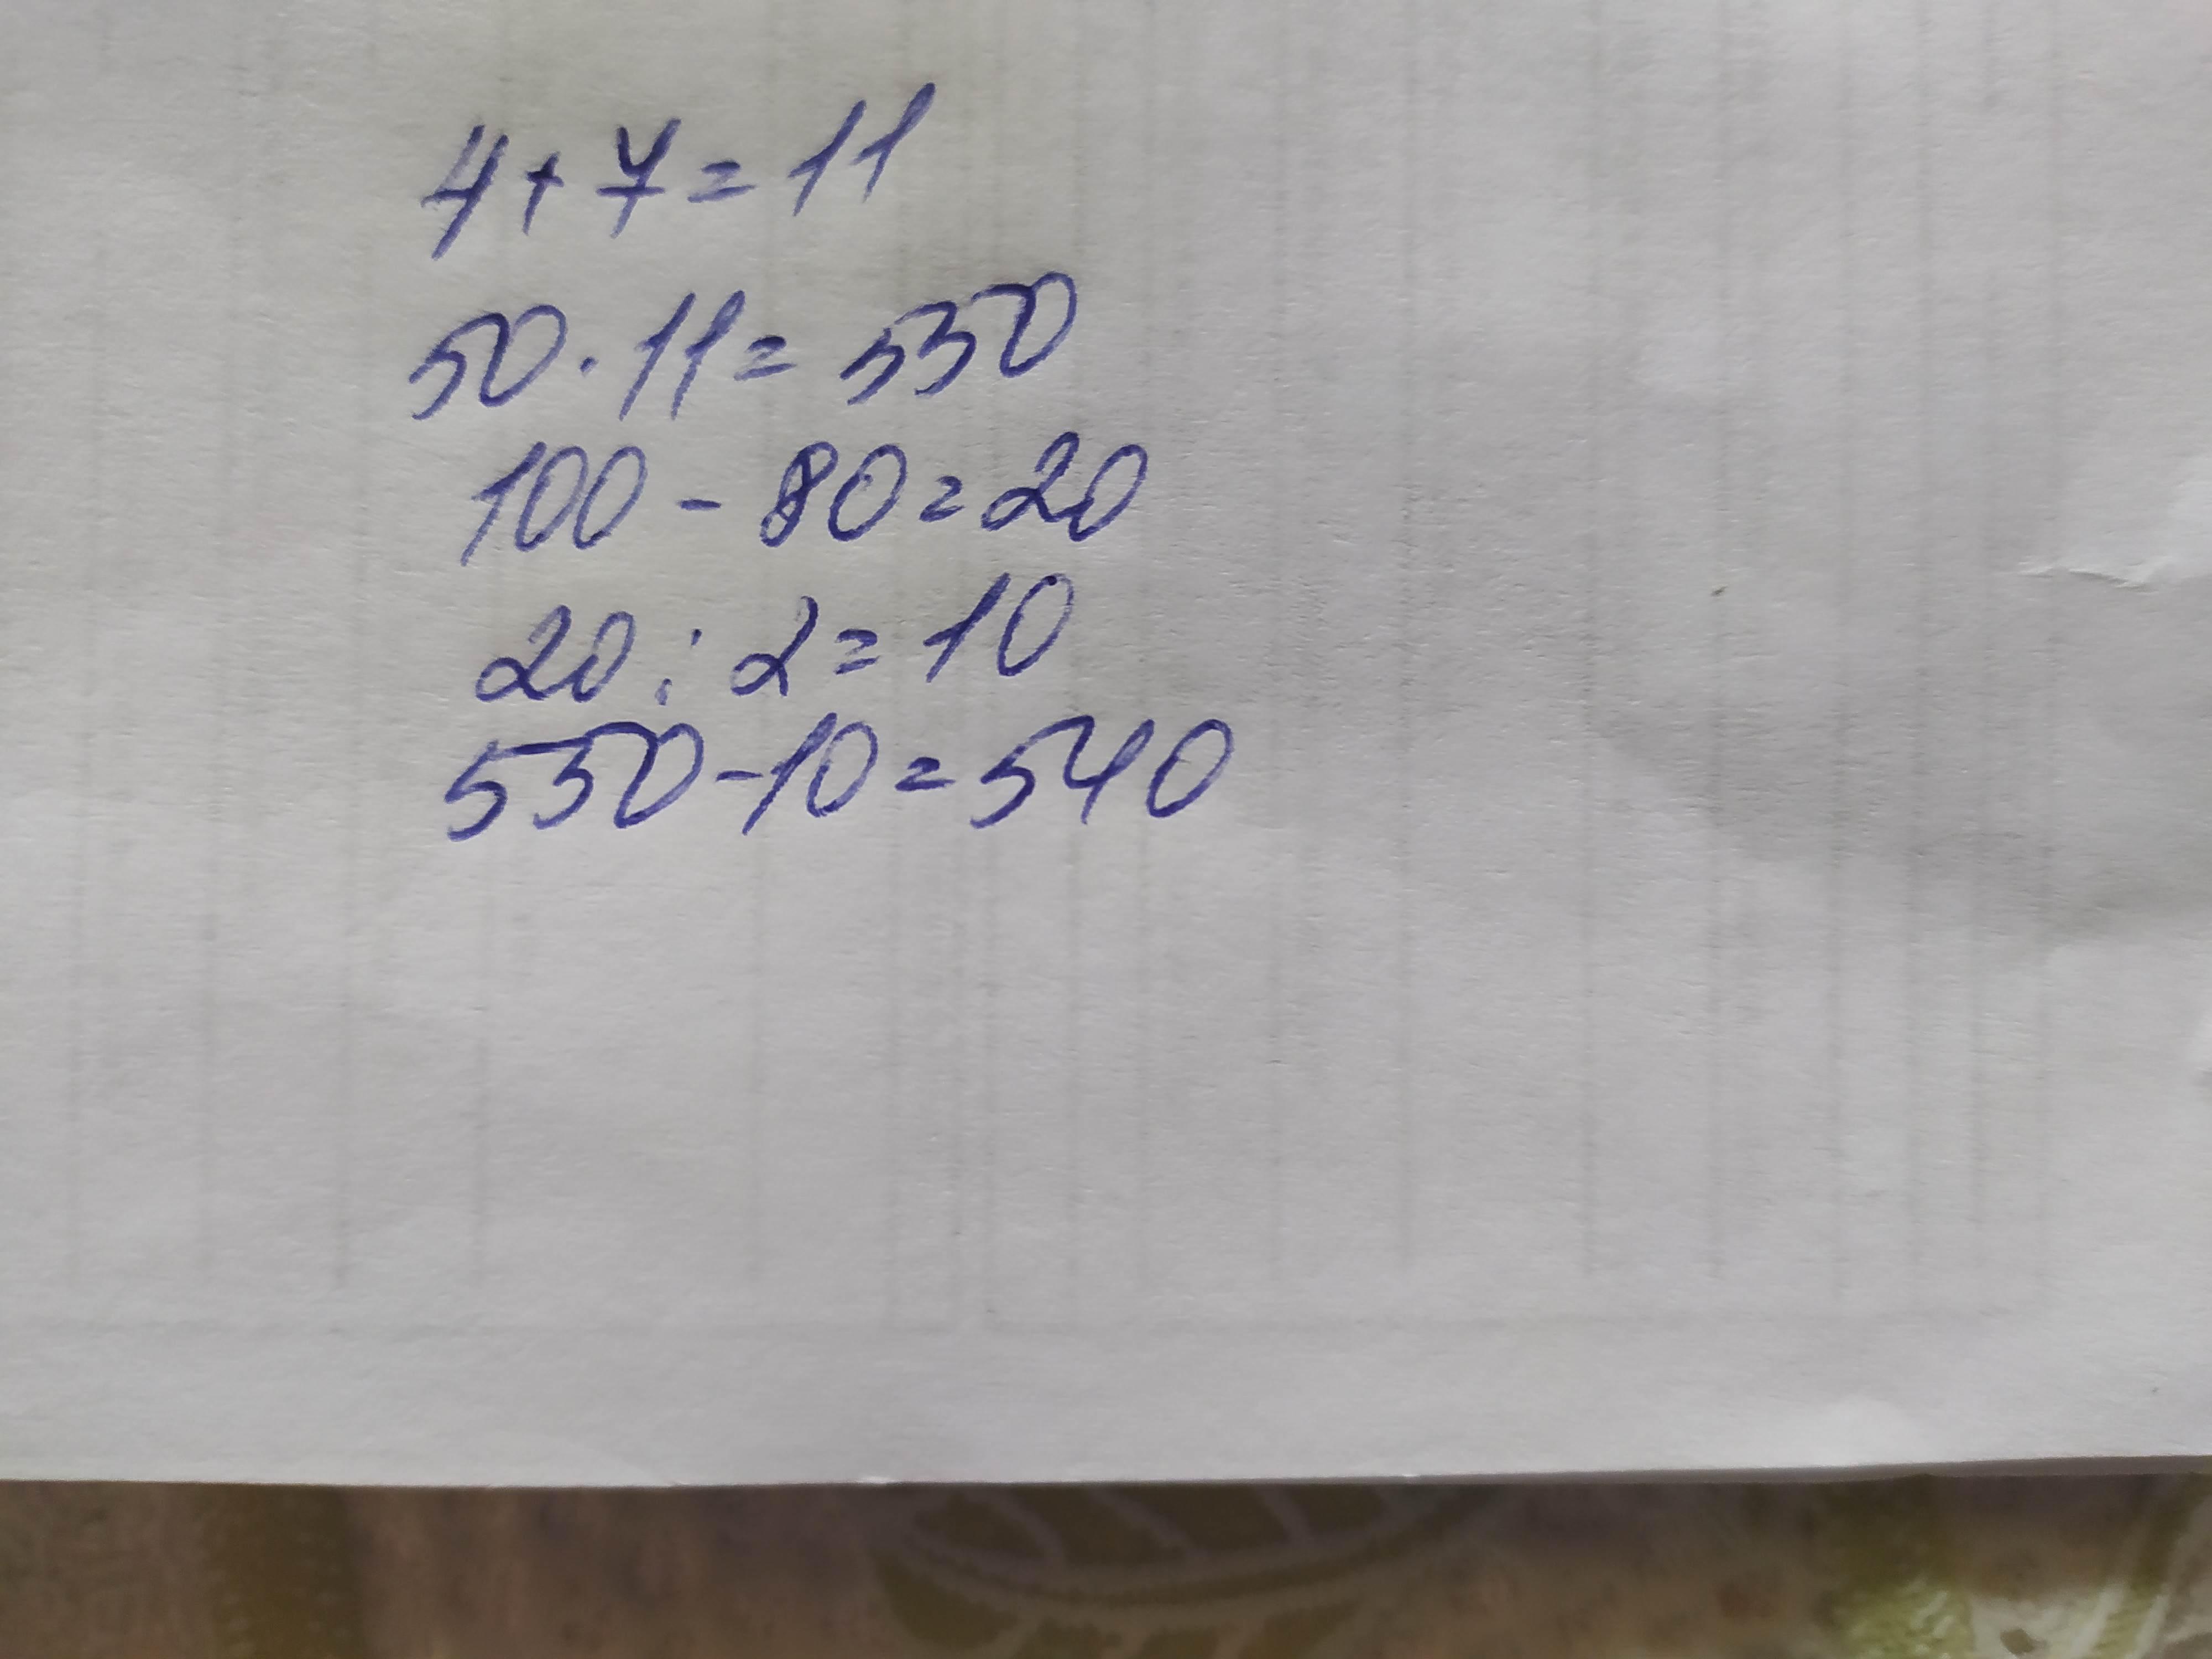 4+7=11
50·11=550
100-80=20
20:2=10
550-10=540